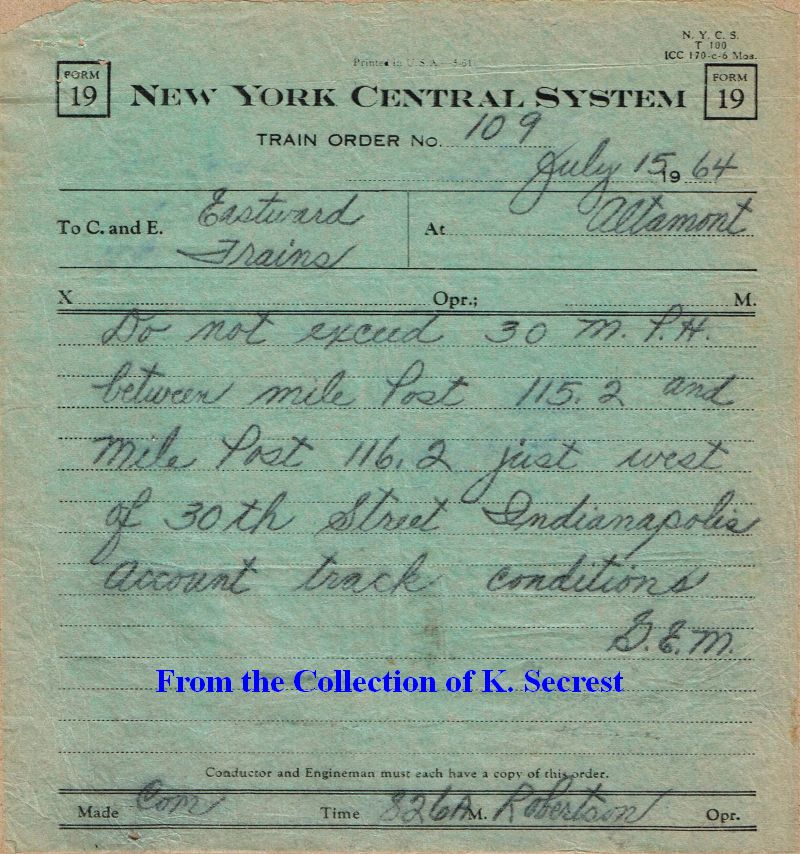 N. Y. C. S.
T 100
ICC 170-c-6 Mos.
Printed in U.S.A. 3-61
FORM 19
NEW YORK CENTRAL SYSTEM
FORM 19
TRAIN ORDER NO. 109
July 15 19 64
To C. and E. Eastward Trains
At Altamont
X Opr.; M.
Do not exceed 30 M. P.H.
between mile Post 115.2 and
Mile Post 116.2 just west
of 30th Street Indianapolis
account track conditions
G.E.M.
From the Collection of K. Secrest
Conductor and Engineman must each have a copy of this order.
Made Com Time 826A M. Robertson Opr.